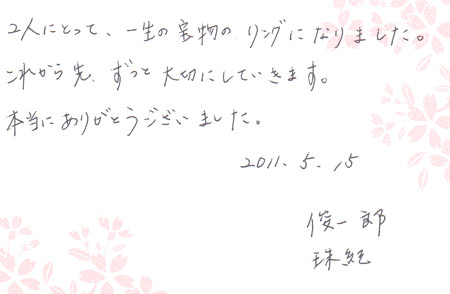 2人にとって、一生の宝物の リングになりました。
これから先、ずっと大切にしていきます。
本当にありがとうございました。
2011. 5. 15
俊一郎
珠紀